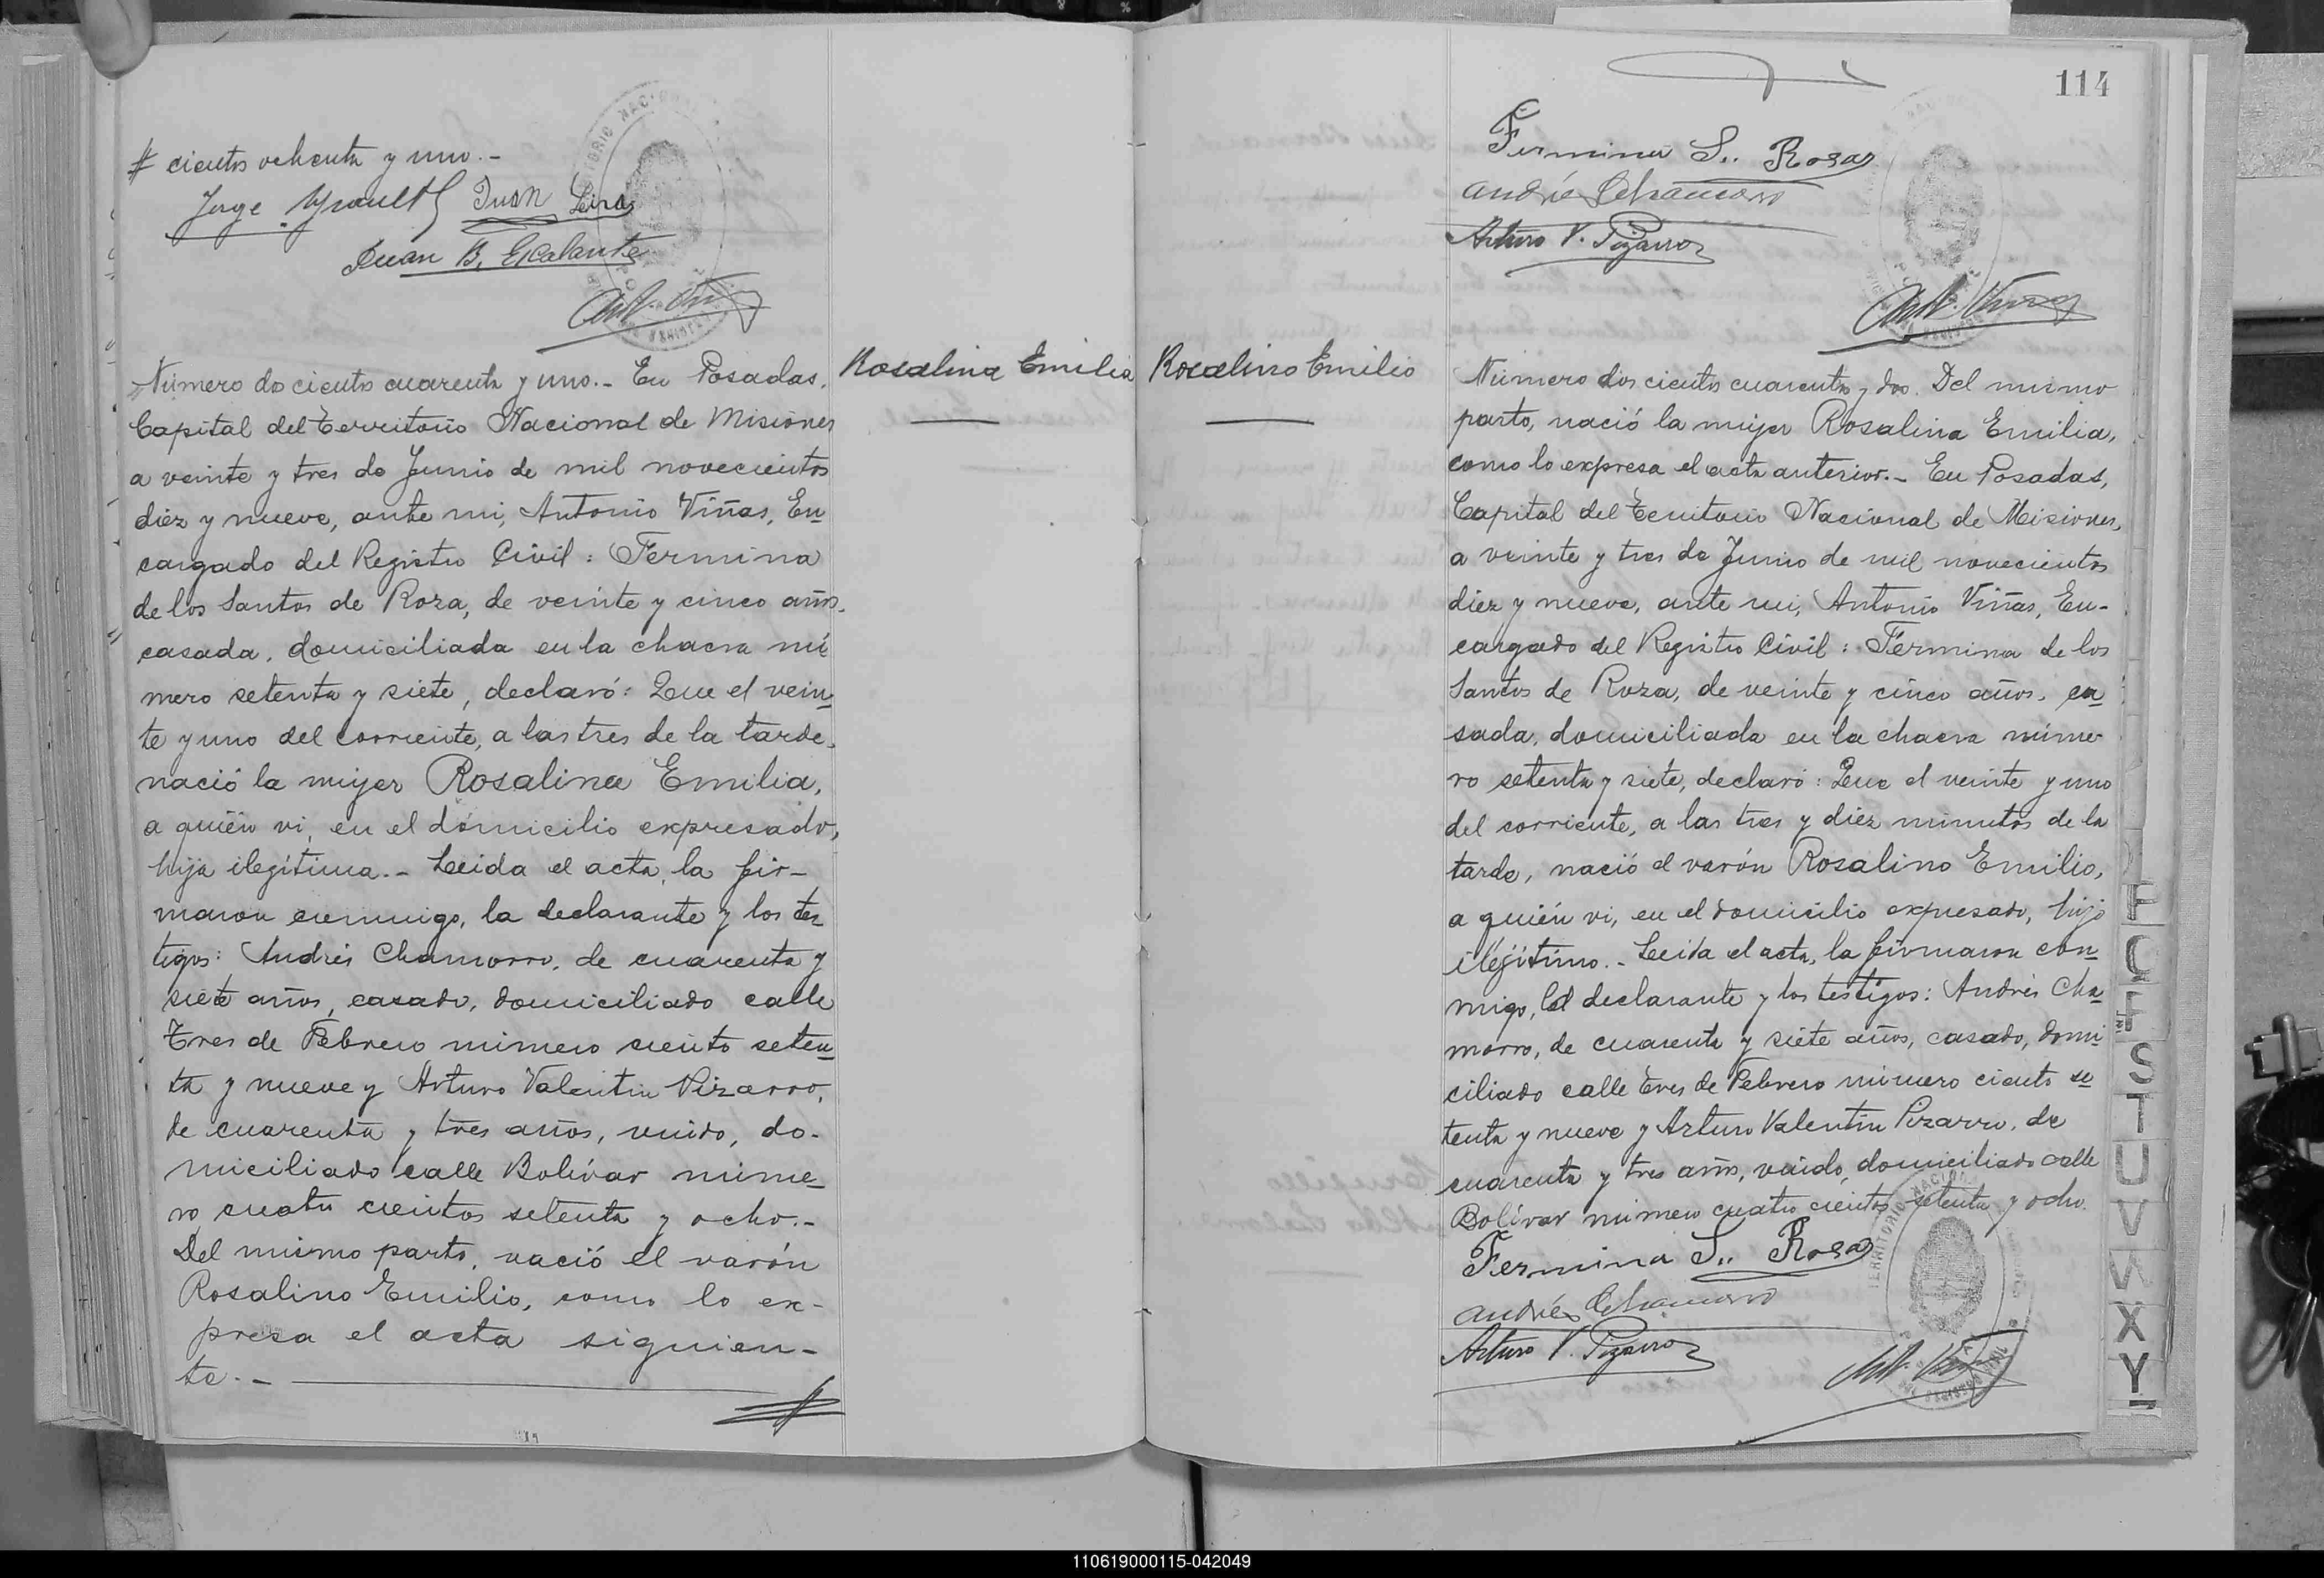 # cientos ochenta y uno.-
Jorge
Juan Leiva
Juan B. Escalante
Ant. Viñas
Número doscientos cuarenta y uno.- En Posadas,
Capital del Territorio Nacional de Misiones
a veinte y tres de Junio de mil novecientos
diez y nueve, ante mi, Antonio Viñas, En
cargado del Registro Civil: Fermina
de los Santos de Roza, de veinte y cinco años,
casada, domiciliada en la chacra nú
mero setenta y siete, declaró: Que el vein
te y uno del corriente, a las tres de la tarde,
nació la mujer Rosalina Emilia,
a quién vi, en el domicilio expresado,
hija ilegítima.- Leida el acta, la fir-
maron conmigo, la declarante y los tes
tigos: Andrés Chamorro, de cuarenta y
siete años, casado, domiciliado calle
Tres de Febrero número ciento seten
ta y nueve y Arturo Valentin Pizarro,
de cuarenta y tres años, viudo, do-
miciliado calle Bolívar núme
ro cuatro cientos setenta y ocho.-
Del mismo parto, nació el varón
Rosalino Emilio, como lo ex-
presa el acta siguien-
te.-
Rosalina Emilia
Rosalino Emilio
114
Fermina S.. Rosas
Andrés Chamorro
Arturo V. Pizarro
Ant. Viñas
Número dos cientos cuarenta y dos. Del mismo
parto, nació la mujer Rosalina Emilia,
como lo expresa el acta anterior.- En Posadas,
Capital del Territorio Nacional de Misiones,
a veinte y tres de Junio de mil novecientos
diez y nueve, ante mi, Antonio Viñas, En-
cargado del Registro Civil: Fermina de los
Santos de Roza, de veinte y cinco años, ca
sada, domiciliada en la chacra núme
ro setenta y siete, declaró: Que el veinte y uno
del corriente, a las tres y diez minutos de la
tarde, nació el varón Rosalino Emilio,
a quién vi, en el domicilio expresado, hijo
ilegítimo.- Leida el acta, la firmaron con
migo, la declarante y los testigos: Andrés Cha
morro, de cuarenta y siete años, casado, domi
ciliado calle Tres de Febrero número ciento se
tenta y nueve y Arturo Valentin Pizarro, de
cuarenta y tres años, viudo, domiciliado calle
Bolívar número cuatro cientos setenta y ocho.
Fermina S.. Rosas
Andrés Chamorro
Arturo V. Pizarro
Ant. Viñas
S
T
U
V
W
X
Y
110619000115-042049